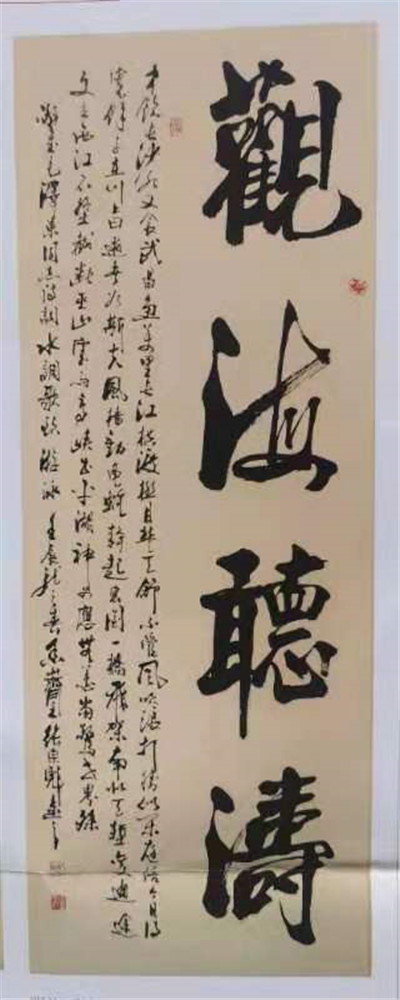 觀海聽濤
才飲长沙水又食武昌魚萬里长江橫渡極目楚天舒不管風吹浪打勝似庭信今日得
寬餘子在川上曰逝者如斯夫風檣動龜蛇靜起宏图一橋飛架南北天塹變通途
更立西江石壁截斷巫山雲雨高峽出平湖神女應無恙當驚世界殊
毛澤東同志詩詞水調歌頭游泳壬辰龍年春